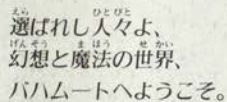 選ばれし人々よ、
幻想と魔法の世界、
バハムートへようこそ。